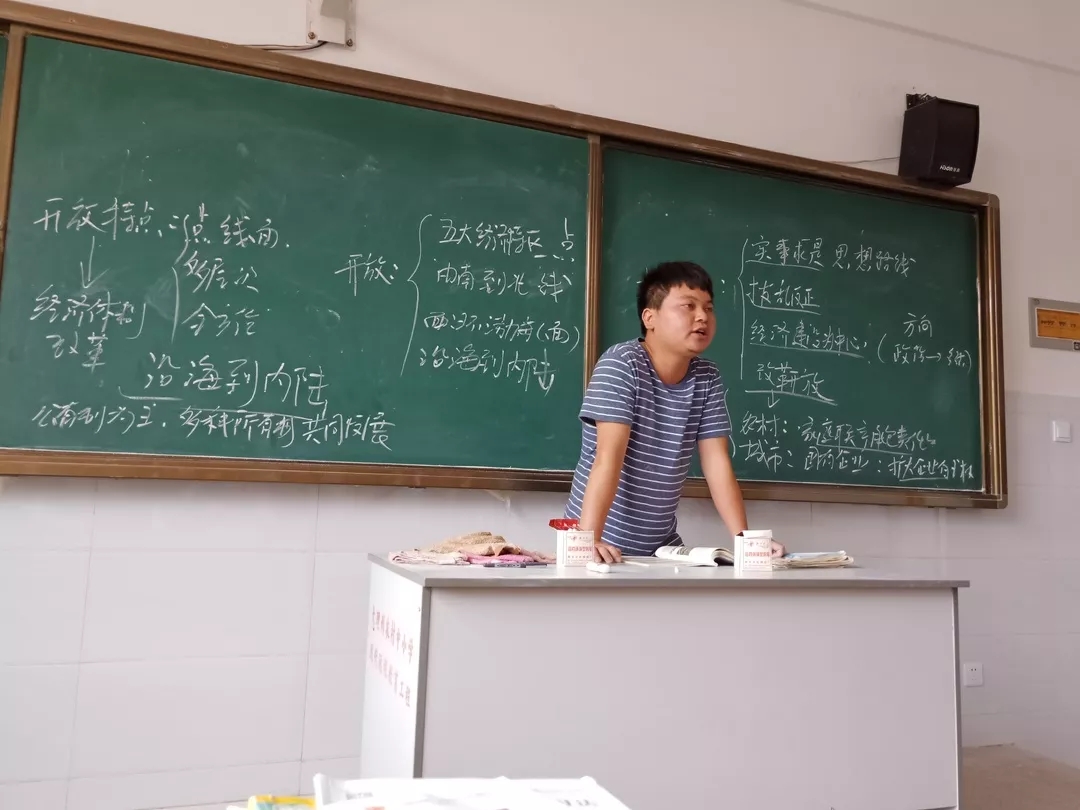 开放特点：点线面
多层次
全方位
经济体制
改革
沿海到内陆
公有制为主，多种所有制共同发展
开放：
五大经济特区 点
由南到北 线
(面)
沿海到内陆
实事求是 思想路线
拨乱反正
经济建设为中心：（方向
政治→经济）
改革开放
农村：家庭联产承包责任
城市：国有企业：扩大企业自主权
农村中小学
工程